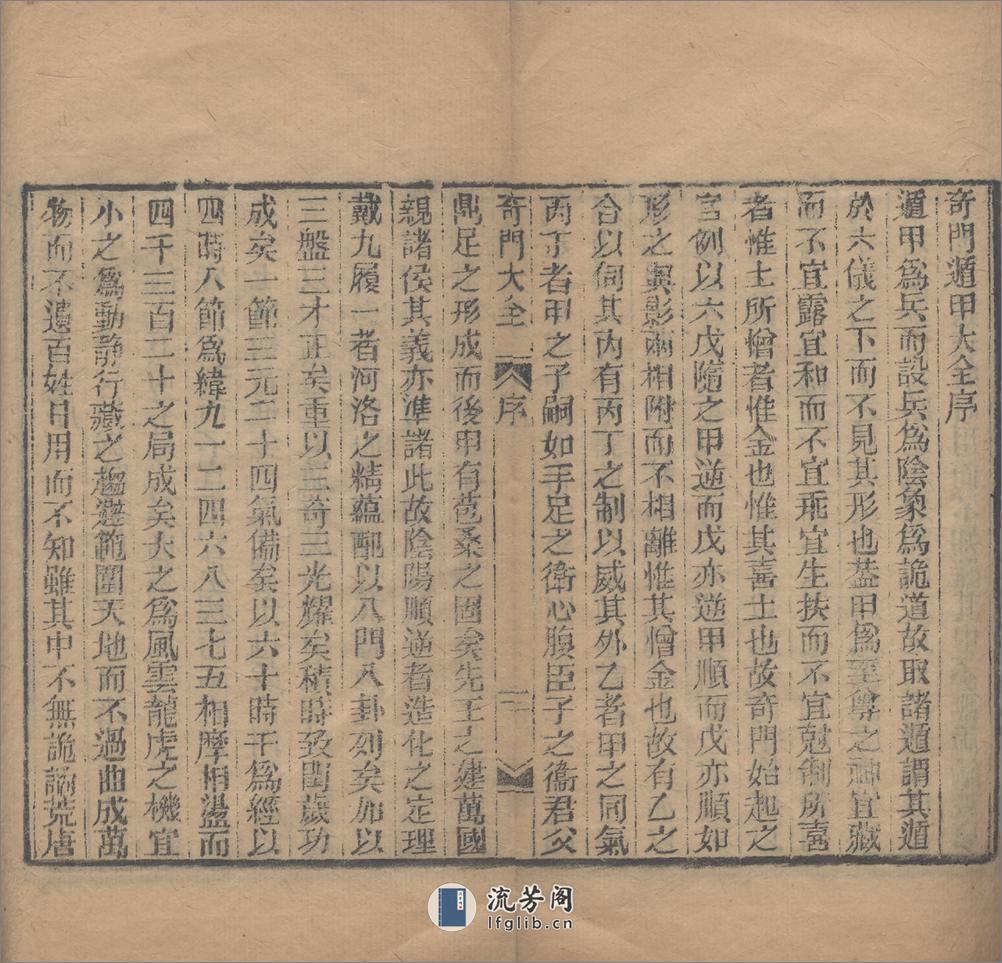 奇門遁甲大全序
遁甲為兵而設兵為陰象為詭道故取諸遁謂其遁
於六儀之下而不見其形也蓋甲為至尊之神宜藏
而不宜露宜和而不宜乖宜生扶而不宜尅制所喜
者惟土所憎者惟金也惟其喜土也故奇門始起之
宮例以六戊隨之甲逆而戊亦逆甲順而戊亦順如
形之與影兩相附而不相離惟其憎金也故有乙之
合以伺其内有丙丁之制以威其外乙者甲之同氣
丙丁者甲之子嗣如手足之衛心腹臣子之衞君父
奇門大全 序 二
鼎足之形成而後甲有苞桑之固矣先王之建萬國
親諸侯其義亦凖諸此故陰陽順逆者造化之定理
戴九履一者河洛之精蘊配以八門八卦列矣加以
三盤三才正矣重以三奇三光耀矣積時致閏歲功
成矣一節三元二十四氣備矣以六十時干為經以
四時八節為緯九一二四六八三七五相摩相盪而
四千三百二十之局成矣大之為風雲龍虎之機宜
小之為動静行藏之趨避範圍天地而不過曲成萬
物而不遺百姓日用而不知雖其中不無詭譎荒唐
流芳阁
lfglib.cn